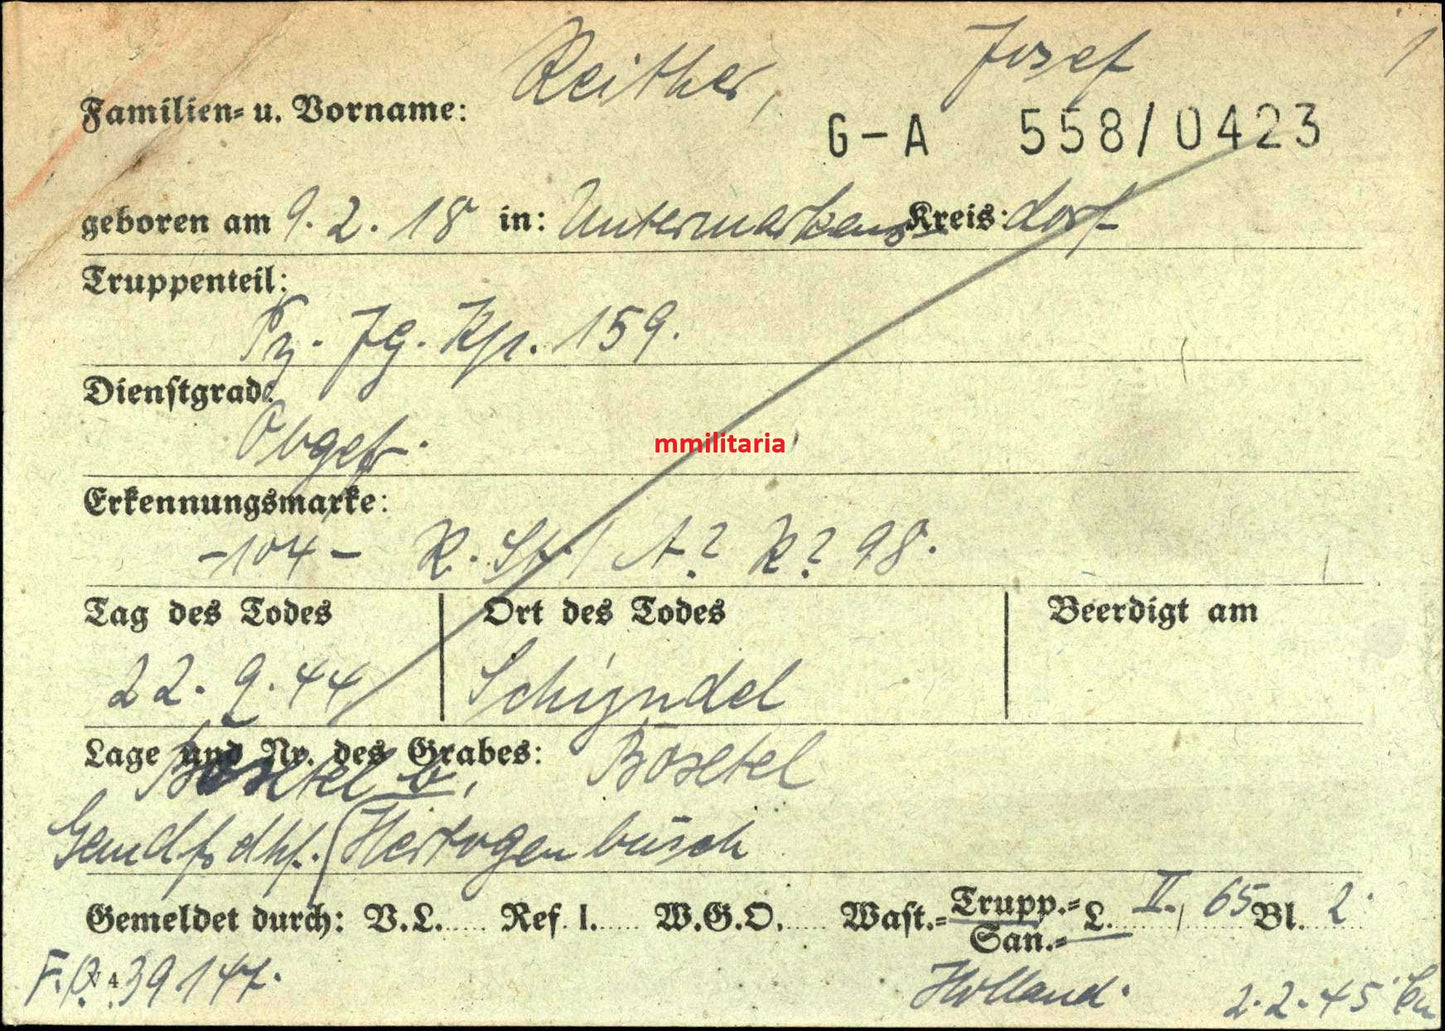 Reither, Josef 1
Familien- u. Vorname:
G-A 558/0423
geboren am 9.2.18 in: Untermarkens Kreis: dorf
Truppenteil:
Pz. Jg. Kp. 159.
Dienstgrad:
Obgefr.
mmilitaria
Erkennungsmarke:
-104- R. St. / A? R? 98.
Tag des Todes Ort des Todes Beerdigt am
22.9.44 Schijndel
Lage und Nr. des Grabes:
Boxtel b. Boxtel
Gemdfrdhf. (Hertogenbusch
Gemeldet durch: V.L. Ref. I. W.G.O. Wast.= Trupp.= San.= L. II, 65 Bl. 2
F.P. 39147. Holland. 2.2.45